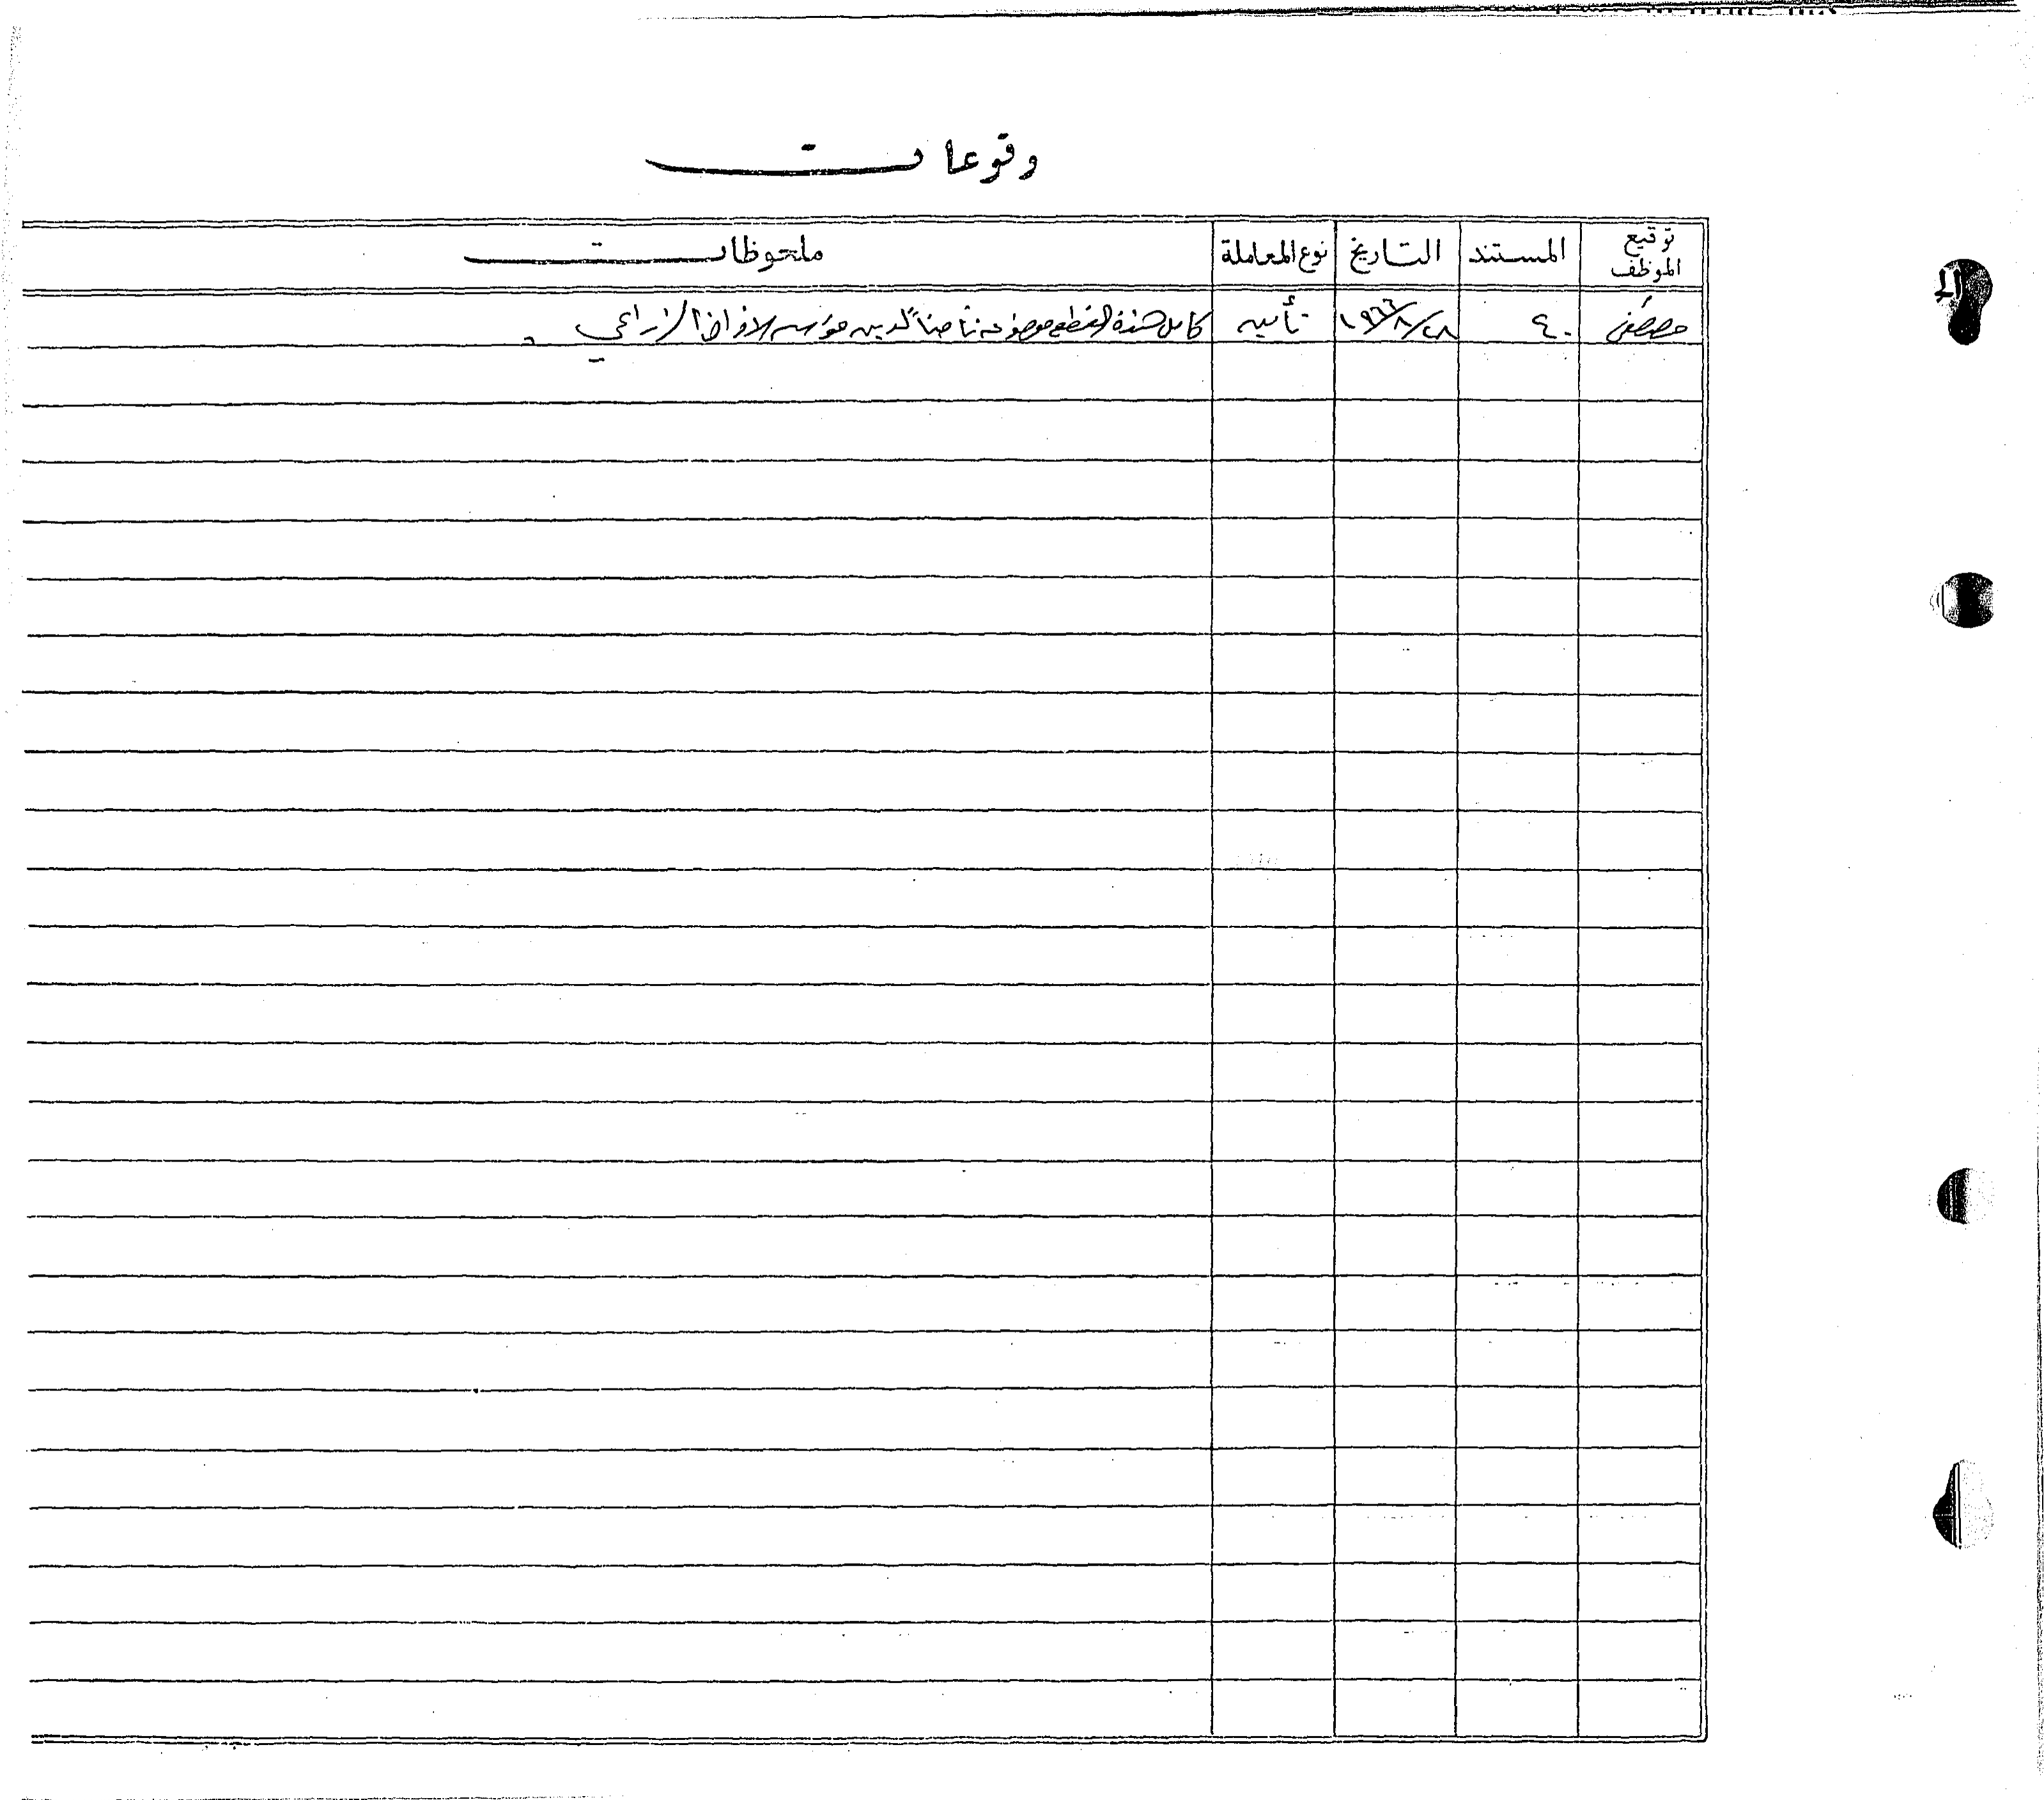 وقوعات
توقيع الموظف المستند التاريخ نوع المعاملة ملحوظات
مصطفى ٤٠ ٢٨/٨/١٩٦٦ تأمين كامل هذه القطع موضوعه تأميناً لدين مؤسسة الاقراض الزراعي